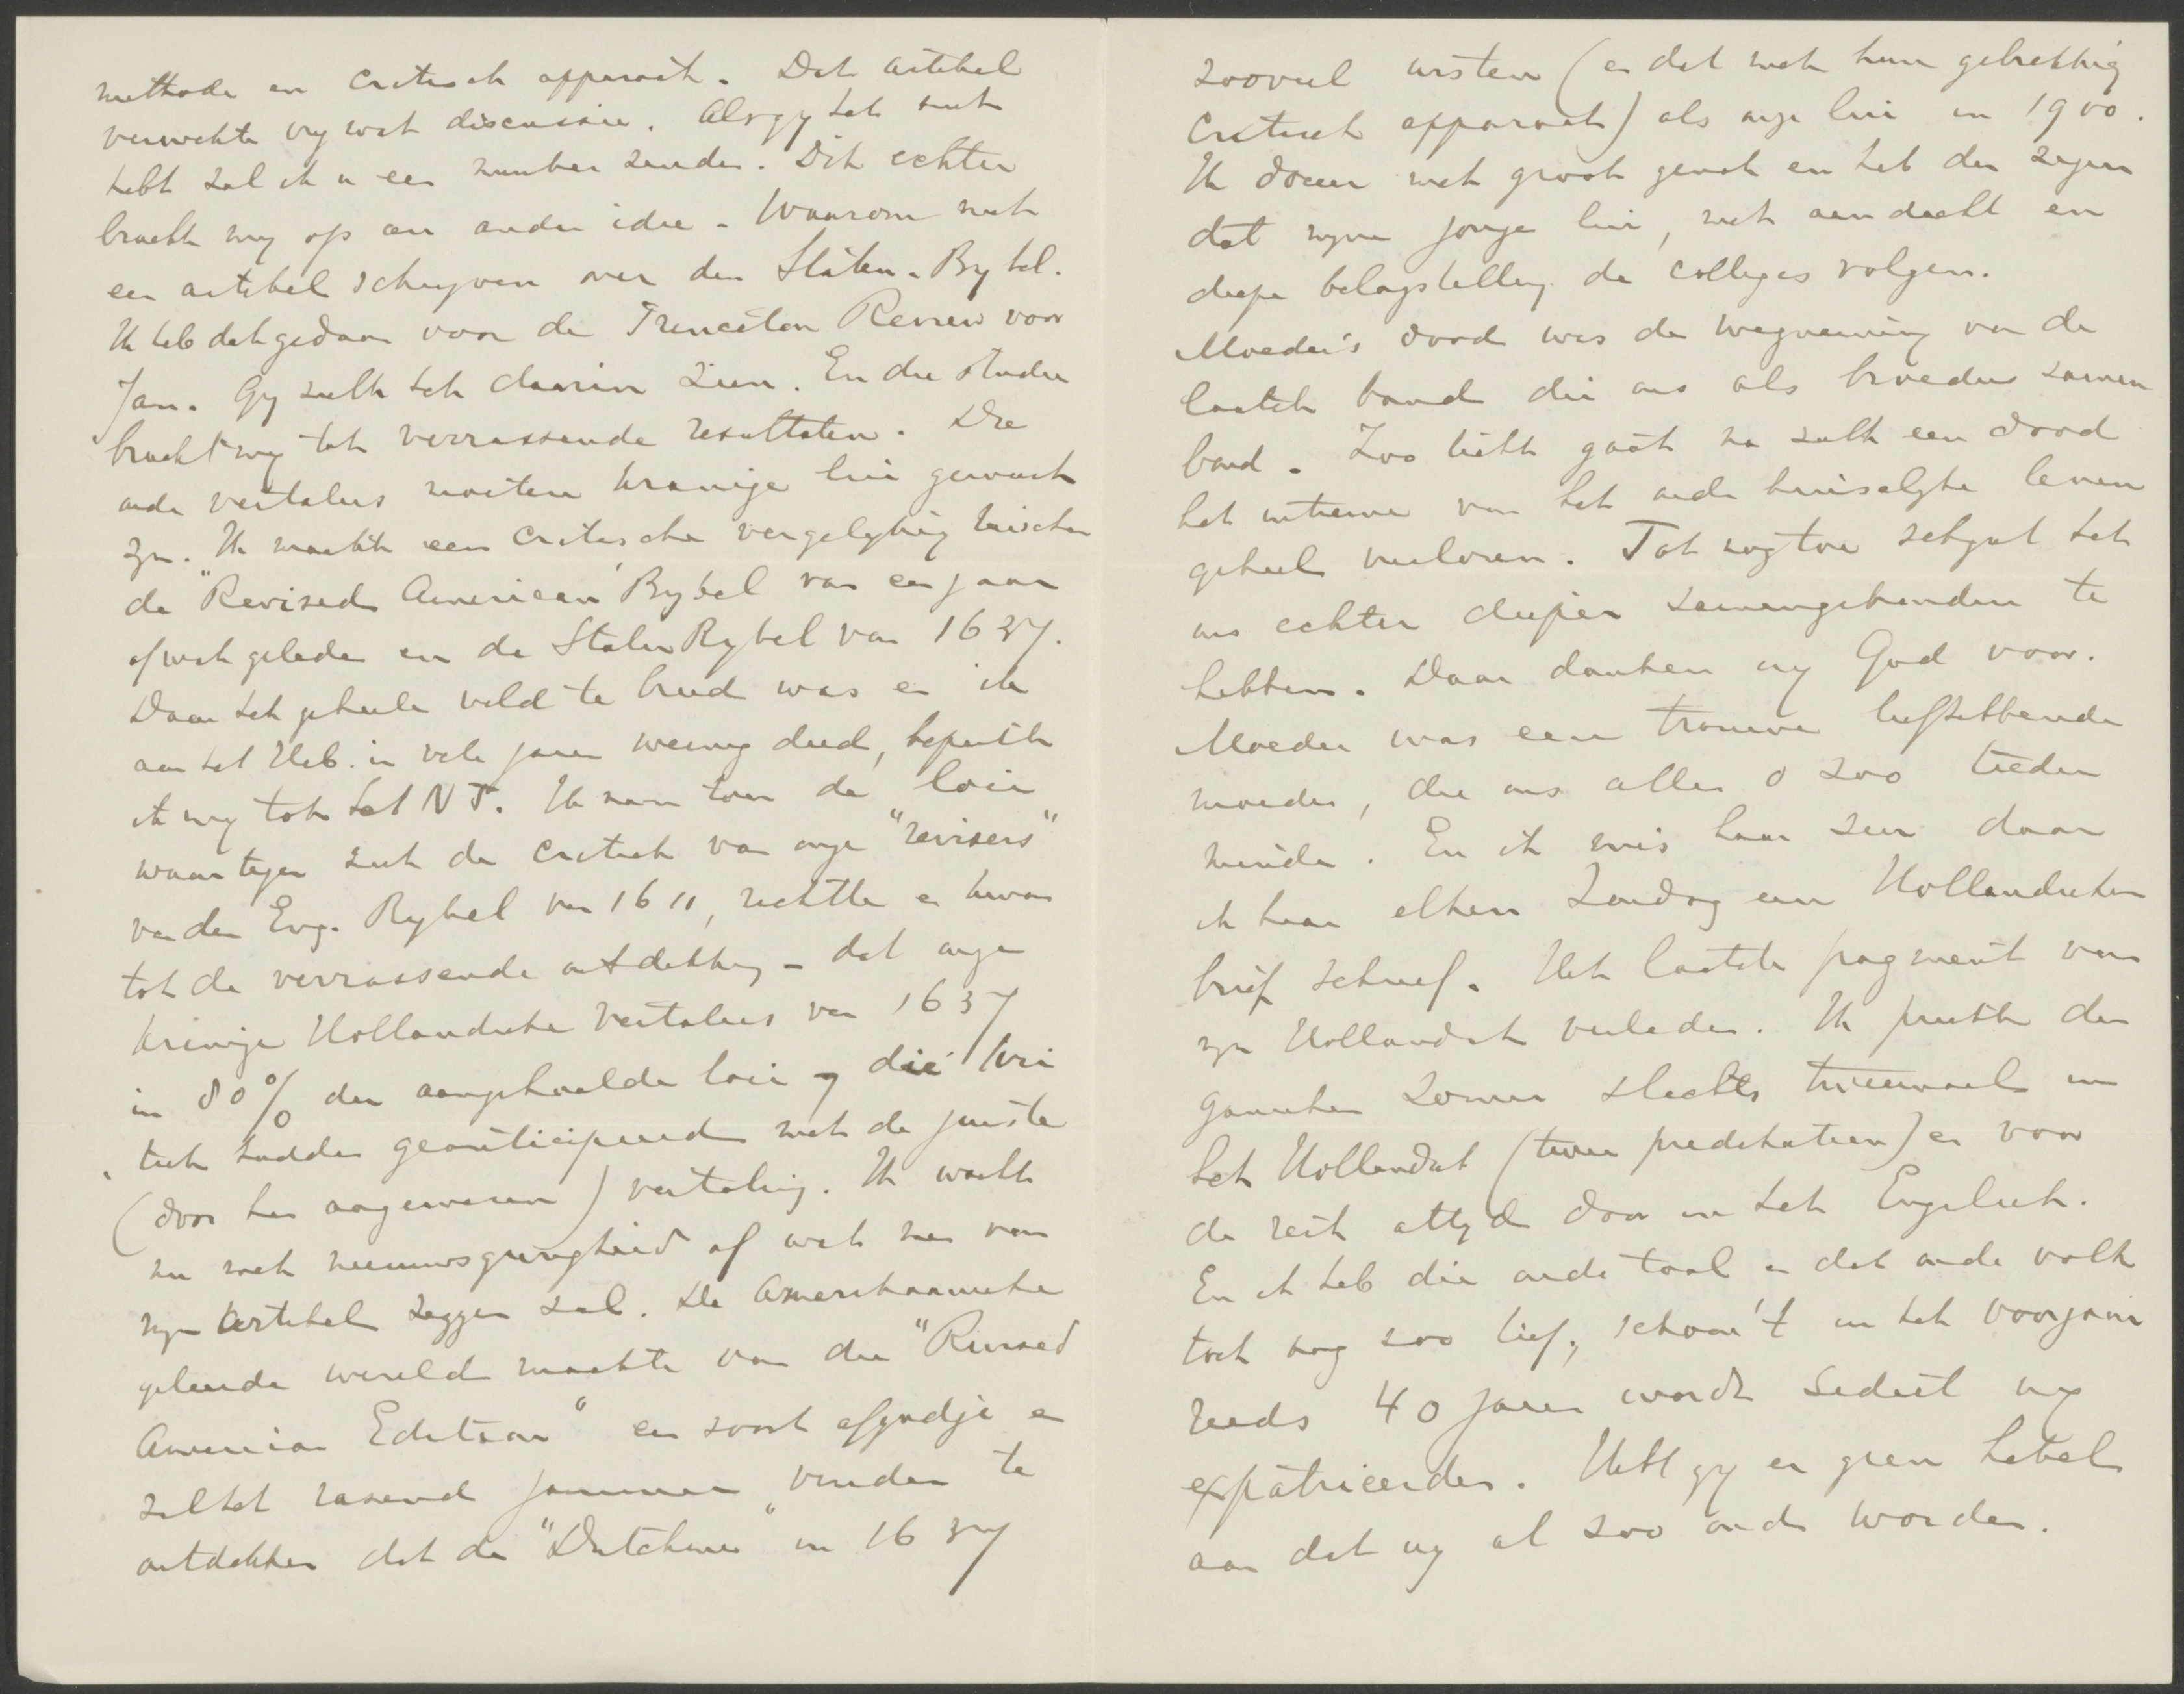 methode en critisch apparaat. Dat artikel
verwekte vry wat discussie. Als gy het niet
hebt zal ik u een number zenden. Dit echter
bracht my op een ander idee. Waarom niet
een artikel schryven over den Staten-Bybel.
Ik heb dat gedaan voor de Princeton Review voor
Jan. Gy zult het daarin zien. En die studie
bracht my tot verrassende resultaten. Die
oude vertalers moeten kranige lui geweest
zyn. Ik maakte een critische vergelyking tusschen
de "Revised American" Bybel van een jaar
of wat geleden en de Staten Bybel van 1637.
Daar het geheele veld te breed was en ik
aan het Heb. in vele jaren weinig deed, bepaalde
ik my tot het N.T. Ik nam toen de loci
waartegen zich de critiek van onze "revisers"
van den Eng. Bybel van 1611, richtte en kwam
tot de verrassende ontdekking – dat onze
kranige Hollandsche vertalers van 1637
in 80% der aangehaalde loci die kri
tiek hadden geanticipeerd met de juiste
(door hen aangewezen) vertaling. Ik wacht
nu met nieuwsgierigheid af wat men van
myn artikel zeggen zal. De Amerikaansche
geleerde wereld maakte van die "Revised
American Edition" een soort afgodje en
zal het razend jammer vinden te
ontdekken dat de "Dutchmen" in 1637
zooveel wisten (en dat met hun gebrekkig
critisch apparaat) als onze lui in 1900.
Ik doceer met groot genot en heb den zegen
dat myne jonge lui, met aandacht en
diepe belangstelling de colleges volgen.
Moeder's dood was de wegneming van de
laatste band die ons als broeders samen
bond. Zoo licht gaat na zulk een dood
het intieme van het oude huiselyke leven
geheel verloren. Tot nog toe schynt het
ons echter dieper samengebonden te
hebben. Daar danken wy God voor.
Moeder was een trouwe liefhebbende
moeder, die ons allen o zoo teeder
minde. En ik mis haar zeer daar
ik haar elken Zondag een Hollandschen
brief schreef. Het laatste fragment van
myn Hollandsch verleden. Ik preekte den
ganschen zomer slechts tweemaal in
het Hollandsch (twee predikatien) en voor
de rest altyd door in het Engelsch.
En ik heb die oude taal en dat oude volk
toch nog zoo lief, schoon 't in het voorjaar
reeds 40 jaren wordt sedert wy
expatrieerden. Hebt gy er geen hekel
aan dat wy al zoo oud worden.